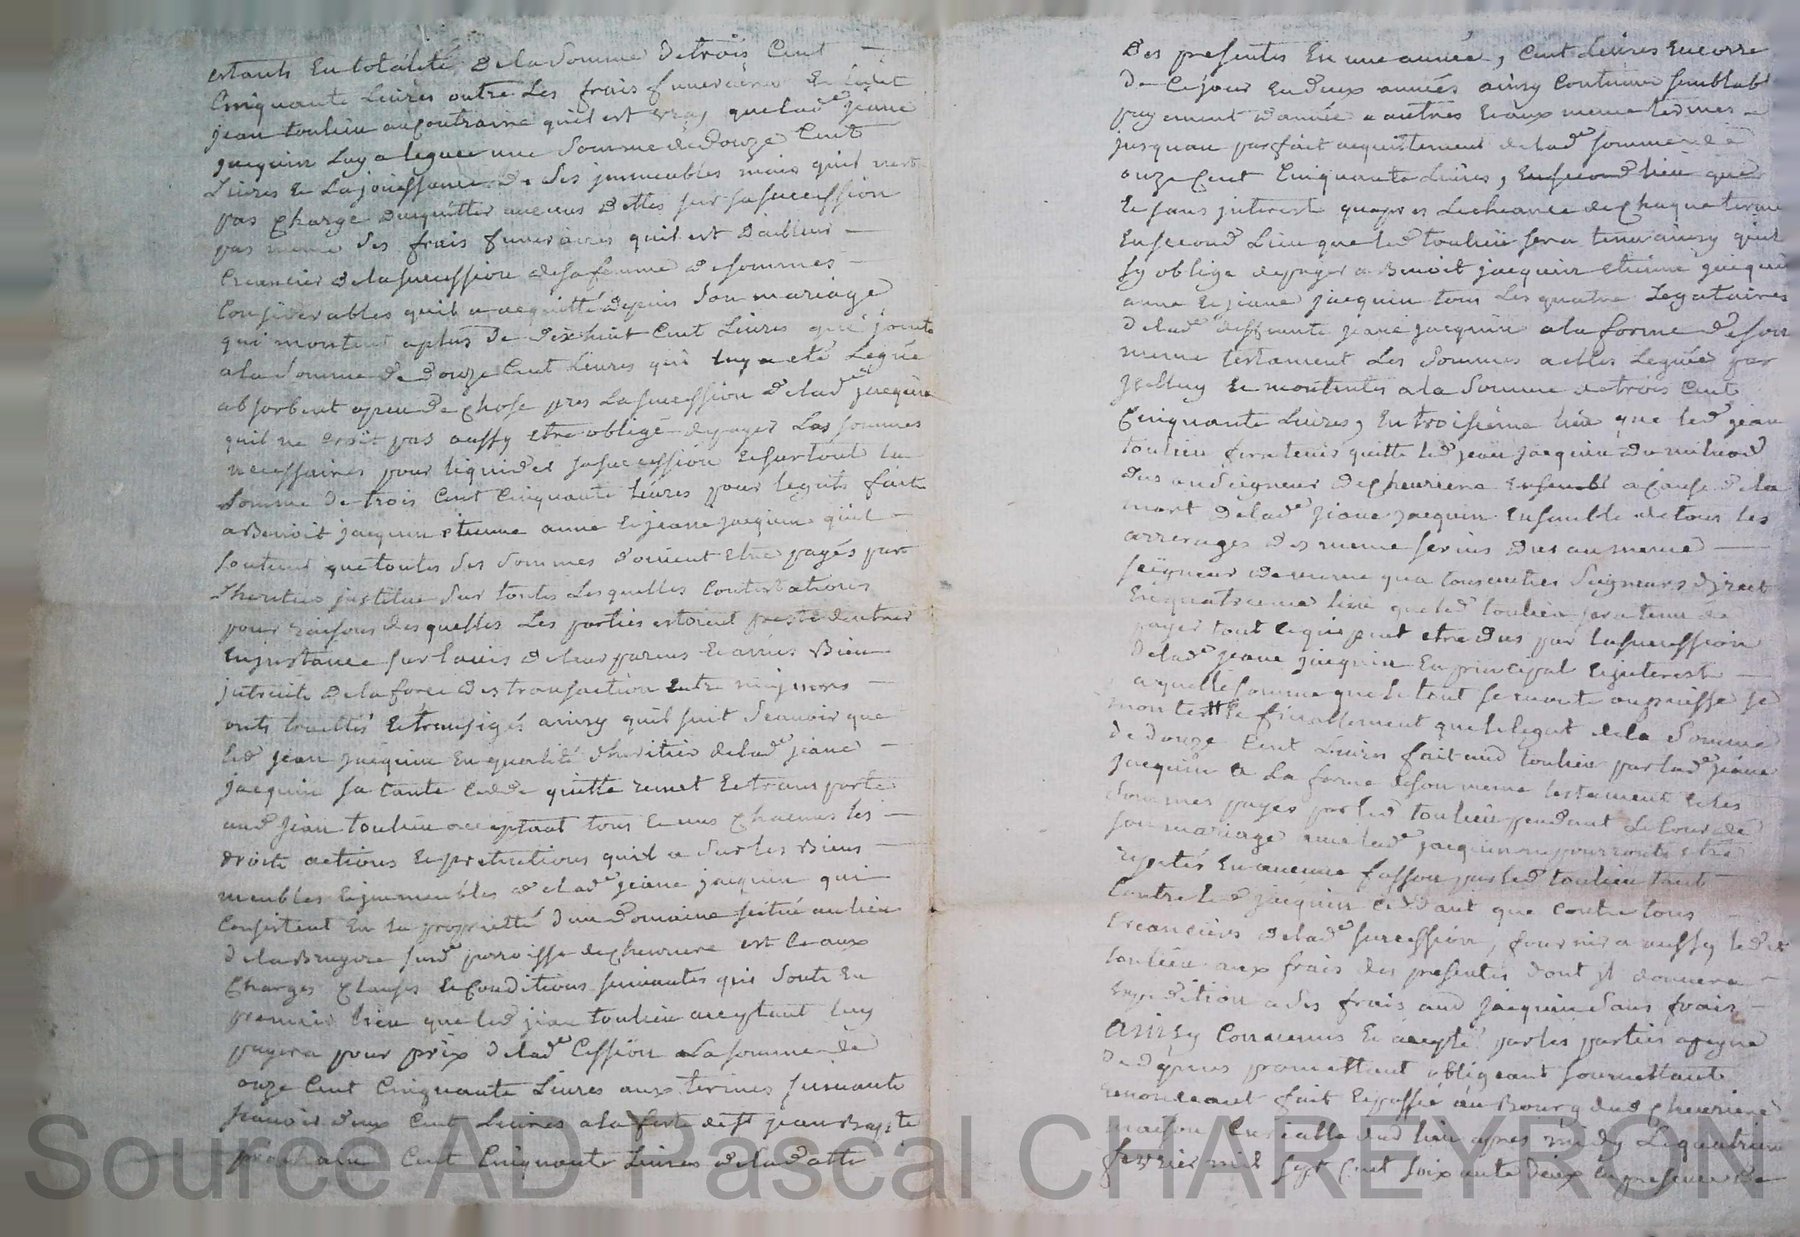 estants En totalité de la somme de trois Cent
Cinquante Livres outre Les frais funeraires Et ledit
jean toulieu au Contraire quil est vray que lade jeane
jacquin Luy a leguée une somme de douze Cent
Livres Et La jouissance de ses immeubles mais quil nest
pas Chargé dacquitter aucuns dettes sur sa succession
pas meme des frais funeraires quil est dailleur
Creancier de la succession de sa femme de sommes
Considerables quil a acquitté depuis son mariage
qui montent a plus de dixhuit Cent Livres que jointe
a la somme de douze Cent Livres qui luy a eté Leguée
absorbent a peu de chose pres La succession de lade jacquin
quil ne croit pas aussy etre obligé de payer Les sommes
necessaires pour liquider sa succession Et surtout la
somme de trois Cent Cinquante Livres pour leguts faits
a Benoit jacquin etienne anne Et jeane jacquin quil
soutient que toutes Ses sommes doivent etre payés par
Lheritier institué Sur toutes Lesquelles Contestations
pour raisons desquelles Les parties estoient preste dentrer
En instance sur lavis de leur parens Et amis Bien
de la force des transaction Entre majeurs
onts traittés Et transigés ainsy quil suit Scauoir que
led jean jacquin En qualité dheritier de lade jeane
jacquin sa tante Cedde quitte remet Et transporte
aud jean toulieu acceptant tous Et uns Chacuns les
droits actions Et pretentions quil a Sur les Biens
meubles Et jmmeubles de lade jeane jacquin qui
Consistent En la proprietté dun domaine scitué au lieu
de la Bruyere sude parroisse de Cheuriere est Ce aux
Charges Clauses Et Conditions suivantes qui Sont En
premier Lieu que led jean toulieu acceptant luy
payera pour prix de lade Cession La somme de
onze Cent Cinquante Livres aux termes suiuants
scauoir deux Cent Livres a la feste de st jean Baptiste
prochain Cent Cinquante Livres de la datte
Des presentes En une année, Cent Livres Encorre
de Ce jour En deux années ainsy Continuer semblable
payement dannée a autres Et aux meme termes
jusquau parfait acquittement de lade somme de
onze Cent Cinquante Livres, En second lieu que
Et sans jnterest quapres Lecheance de Chaque terme
En second Lieu que led toulieu sera tenu ainsy quil
sy oblige de payer a Benoit jacquin etienne jacquin
anne Et jeane jacquin tous Les quatre Legataires
de lade deffunte jeane jacquin a la forme de son
meme testament Les sommes a elles Leguée par
jcelluy Et montantes a la somme de trois Cent
Cinquante Livres, En troisieme lieu que led jean
toulieu fera tenir quitte led jean jacquin du milaod
dus au seigneur de Cheuriere a Cause de la
mort de lade jeane jacquin Ensemble de tous les
arrerages des meme servis dues au meme
seigneur de meme qua tous autres Seigneurs direct
En quatrieme lieu que led toulieu sera tenu de
payer tout Ce qui peut etre dus par la succession
de lade jeane jacquin En principal Et jnterest
a quelle somme que Le tout se monte ou puisse se
monter finallement que le legat de la Somme
de douze Cent Livres fait aud toulieu par lade jeane
jacquin a La forme de son meme testament Et les
sommes payés par led toulieu pendant Le Cour de
son mariage avec lade jacquin ne pourronts etre
repetés En aucune fasson par led toulieu tant
Contre led jacquin Ceddant que Contre tous
Creanciers de lade succession, fournira aussy led
toulieu aux frais des presentes dont jl donnera
Expedition a ses frais aud jacquin sans frais
Ainsy Convenus Et accepté par les parties a peyne
De depens promettant obligeant soumettant
renonceant fait Et passé au Bourg dud Cheuriere
maison Curialle dud lieu apres midy Le quatrieme
fevrier mil sept Cent soixante deux En presence De
Source AD Pascal CHAREYRON